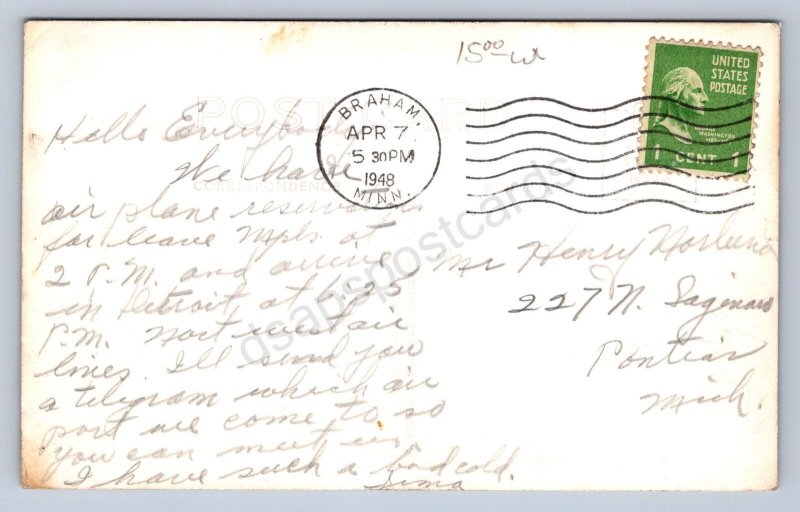 15⁰⁰ w
UNITED
STATES
POSTAGE
GEORGE
WASHINGTON
1 CENT 1
BRAHAM,
APR 7
5 30PM
1948
MINN.
POST CARD
CORRESPONDENCE
Hello Everybody
We have
air plane reservations
for leave Mpls at
2 P.M. and arrive
in Detroit at 6,25
P.M. Nort west air
lines. I'll send you
a telegram which air
port we come to so
you can meet us.
I have such a bad cold.
Mr Henry Norlund
227 N. Saginaw
Pontiac
Mich.
dsapspostcards